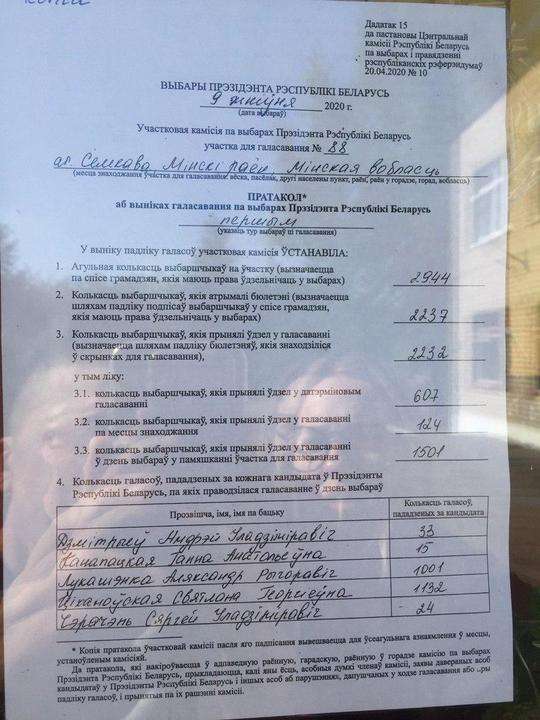 копия
Дадатак 15
да пастановы Цэнтральнай
камісіі Рэспублікі Беларусь
па выбарах і правядзенні
рэспубліканскіх рэферэндумаў
20.04.2020 № 10
ВЫБАРЫ ПРЭЗІДЭНТА РЭСПУБЛІКІ БЕЛАРУСЬ
9 жніўня 2020 г.
(дата выбараў)
Участковая камісія па выбарах Прэзідэнта Рэспублікі Беларусь
участка для галасавання № 88
аг. Сеніцa Мінскі раён Мінская вобласць
(месца знаходжання участка для галасавання: вёска, пасёлак, другі населены пункт, раён, раён у горадзе, горад, вобласць)
ПРАТАКОЛ*
аб выніках галасавання па выбарах Прэзідэнта Рэспублікі Беларусь
першым
(указаць тур выбараў ці галасавання)
У выніку падліку галасоў участковая камісія ЎСТАНАВІЛА:
1. Агульная колькасць выбаршчыкаў на ўчастку (вызначаецца
па спісе грамадзян, якія маюць права ўдзельнічаць у выбарах) 2944
2. Колькасць выбаршчыкаў, якія атрымалі бюлетэні (вызначаецца
шляхам падліку подпісаў выбаршчыкаў у спісе грамадзян,
якія маюць права ўдзельнічаць у выбарах) 2237
3. Колькасць выбаршчыкаў, якія прынялі ўдзел у галасаванні
(вызначаецца шляхам падліку бюлетэняў, якія знаходзіліся
ў скрынках для галасавання), 2232
у тым ліку:
3.1. колькасць выбаршчыкаў, якія прынялі ўдзел у датэрміновым
галасаванні 607
3.2. колькасць выбаршчыкаў, якія прынялі ўдзел у галасаванні
па месцы знаходжання 124
3.3. колькасць выбаршчыкаў, якія прынялі ўдзел у галасаванні
ў дзень выбараў у памяшканні ўчастка для галасавання 1501
4. Колькасць галасоў, пададзеных за кожнага кандыдата ў Прэзідэнты
Рэспублікі Беларусь, па якіх праводзілася галасаванне ў дзень выбараў
Прозвішча, імя, імя па бацьку Колькасць галасоў,
пададзеных за кандыдата
Дзмітрыеў Андрэй Уладзіміравіч 33
Канапацкая Ганна Анатольеўна 15
Лукашэнка Аляксандр Рыгоравіч 1001
Ціханоўская Святлана Георгіеўна 1132
Чэрачэнь Сяргей Уладзіміравіч 24
* Копія пратакола ўчастковай камісіі пасля яго падпісання вывешваецца для ўсеагульнага азнаямлення ў месцы,
устаноўленым камісіяй.
Да пратакола, які накіроўваецца ў адпаведную раённую, гарадскую, раённую ў горадзе камісію па выбарах
Прэзідэнта Рэспублікі Беларусь, прыкладаюцца, калі яны ёсць, асобныя думкі членаў камісіі, заявы давераных асоб
кандыдатаў у Прэзідэнты Рэспублікі Беларусь і іншых асоб аб парушэннях, дапушчаных у ходзе галасавання або
падліку галасоў, і прынятыя па іх рашэнні камісіі.